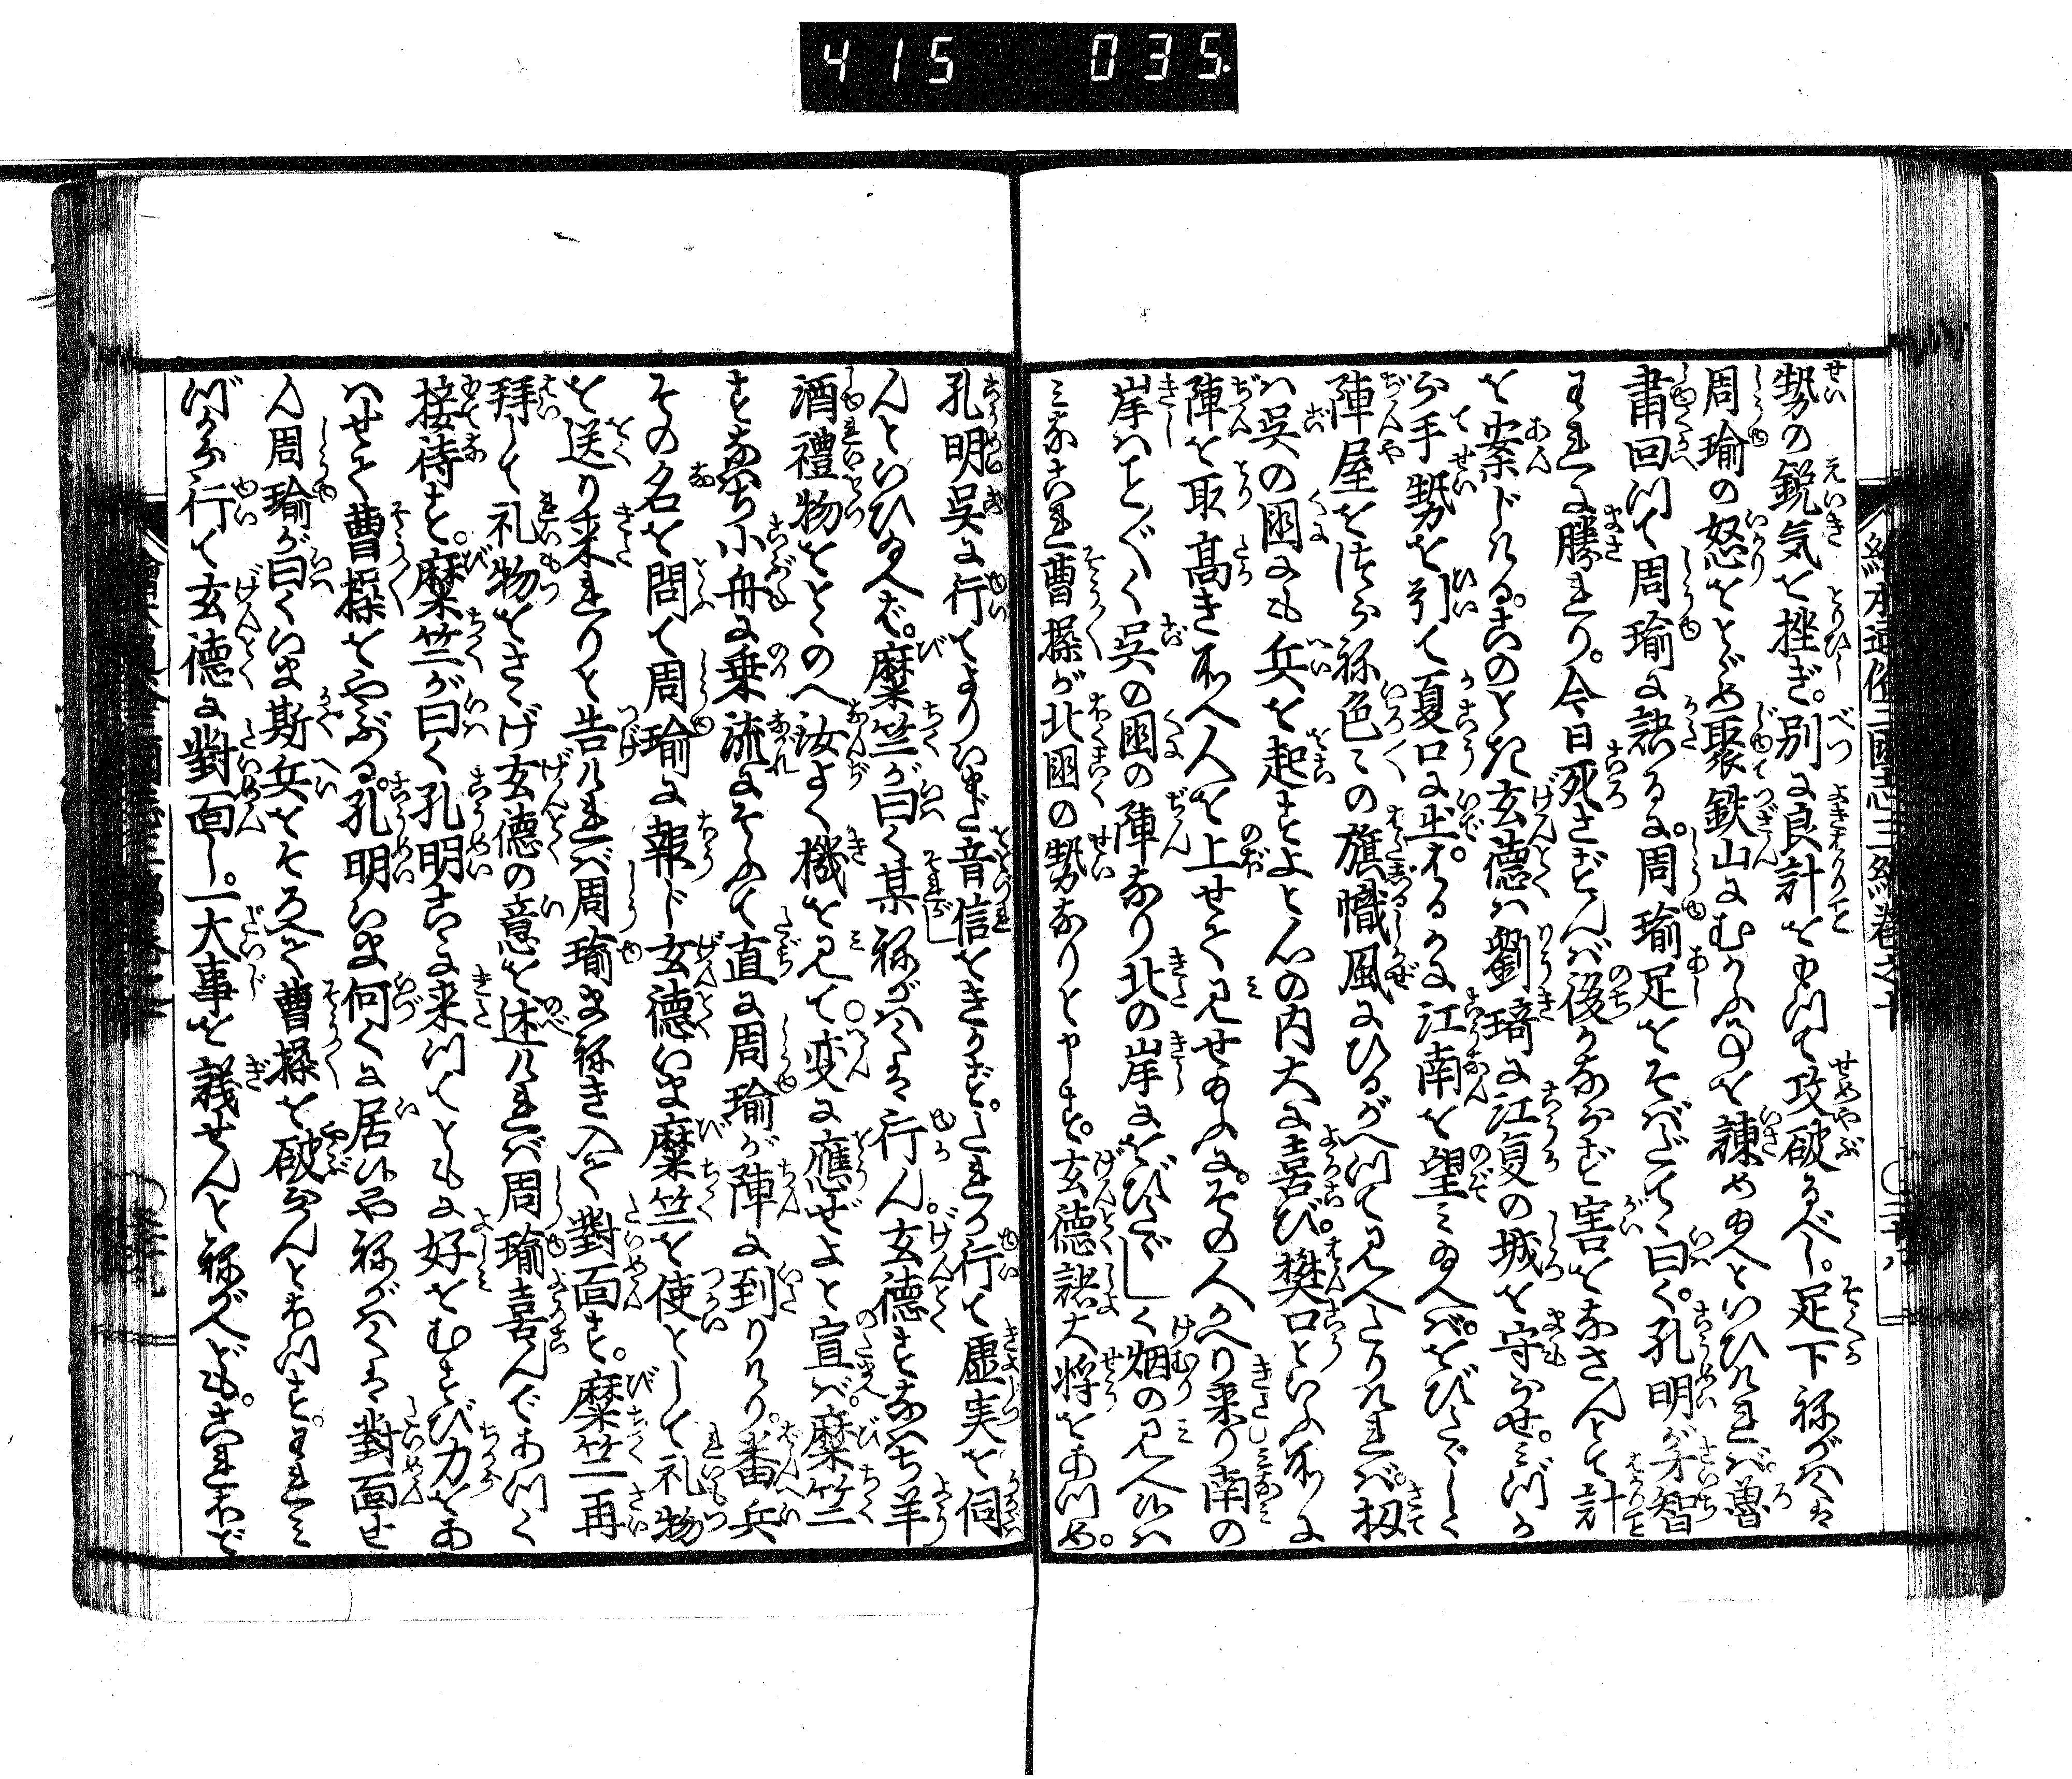 415 035.
繪本通俗三國志三編卷之十
勢の鋭気を挫ぎ。別に良計をもつて攻破るべし。足下ねがはくは
周瑜の怒をとゞめ聚鉄山にむかふ事を諫め給へといひければ。魯
肅回つて周瑜に訣るに。周瑜足をそばだてゝ曰く。孔明が才智
われに勝れり。今日死さずんば後かならず害をなさんとて計
を案じける。このとき玄徳は劉琦に江夏の城を守らせ。みづか
ら手勢を引て夏口に出。はるかに江南を望み給へば。をびたゞしく
陣屋をつらね色々の旗幟風にひるがへつて見へたりければ。扨
は呉の国にも兵を起すよと心の内大に喜び。樊口といふ所に
陣を取高き所へ人を上せて見せ給ふに。その人かへり来り南の
岸はこと〴〵く呉の国の陣なり北の岸にをびたゞしく烟の見へ候は
みなこれ曹操が北国の勢なりと申す。玄徳諸大将をあつめ。
孔明呉に行てよりいまだ音信をきかず。たれか行て虚実を伺
んといひ給へば。糜竺が曰く某ねがはくは行ん。玄徳すなはち羊
酒禮物をとゝのへ汝よく機を見て。変に應ぜよと宣ば。糜竺
すなはち小舟に乗流にそふて直に周瑜が陣に到りけり。番兵
その名を問て周瑜に報じ玄徳いま糜竺を使として礼物
を送り来れりと告ければ周瑜まねき入て對面す。糜竺再
拜して礼物をさゝげ玄徳の意を述ければ周瑜喜んであつく
接待す。糜竺が曰く孔明こゝに来つてともに好をむすび力をあ
はせて曹操をやぶる。孔明いま何くに居候や。ねがはくは對面せ
ん周瑜が曰くいま斯兵をそろへて曹操を破らんとおつす。われみ
づから行て玄徳に對面し。一大事を議せんとねがへども。これほど